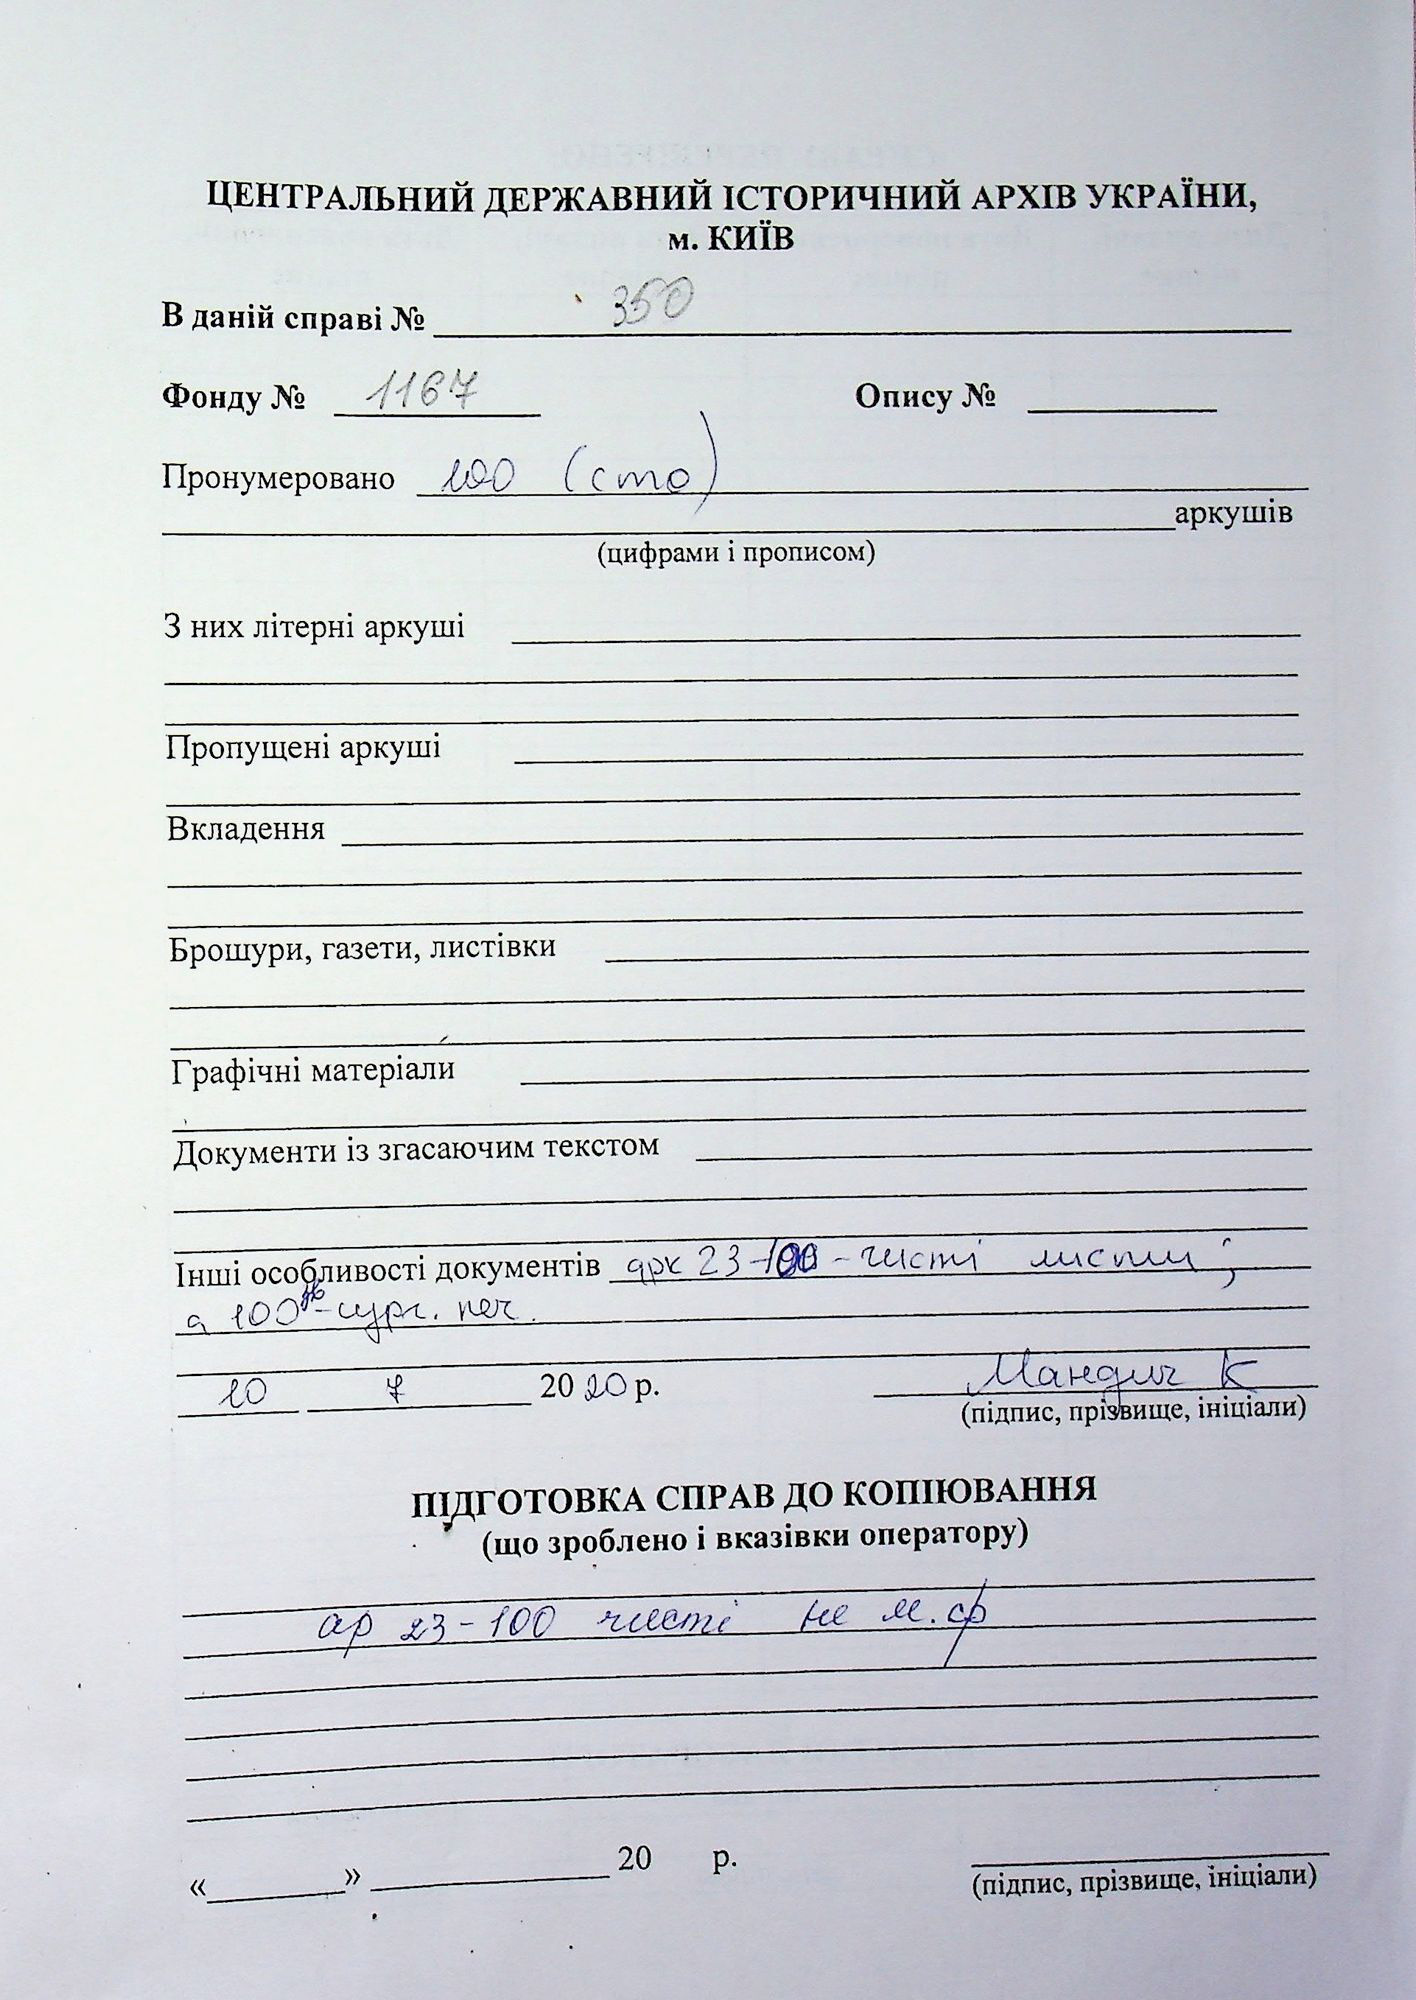 ЦЕНТРАЛЬНИЙ ДЕРЖАВНИЙ ІСТОРИЧНИЙ АРХІВ УКРАЇНИ,
м. КИЇВ
В даній справі № 350
Фонду № 1167 Опису №
Пронумеровано 100 (сто)
аркушів
(цифрами і прописом)
З них літерні аркуші
Пропущені аркуші
Вкладення
Брошури, газети, листівки
Графічні матеріали
Документи із згасаючим текстом
Інші особливості документів арк 23-100 - чисті листи;
а 100 зв - сург. печ.
10 7 2020 р. Мандич К
(підпис, прізвище, ініціали)
ПІДГОТОВКА СПРАВ ДО КОПІЮВАННЯ
(що зроблено і вказівки оператору)
ар 23-100 чисті не м.ф
«» 20 р.
(підпис, прізвище, ініціали)